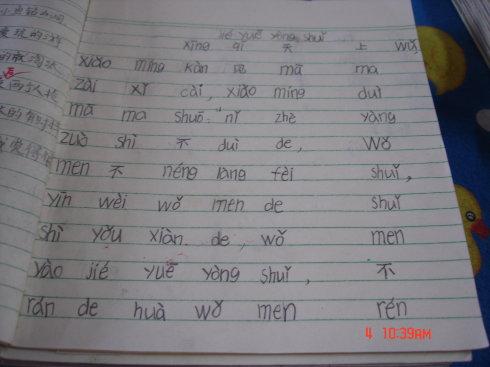 jié yuē yòng shuǐ
xīng qī 天 上 wǔ
xiǎo míng kàn 见 mā ma
zài xǐ cài, xiǎo míng duì
mā ma shuō: "nǐ zhè yàng
zuò shì 不 duì de, wǒ
men 不 néng làng fèi shuǐ,
yīn wèi wǒ men de shuǐ
shì yǒu xiàn de, wǒ men
yào jié yuē yòng shuǐ, 不
rán de huà wǒ men rén
4 10:39AM